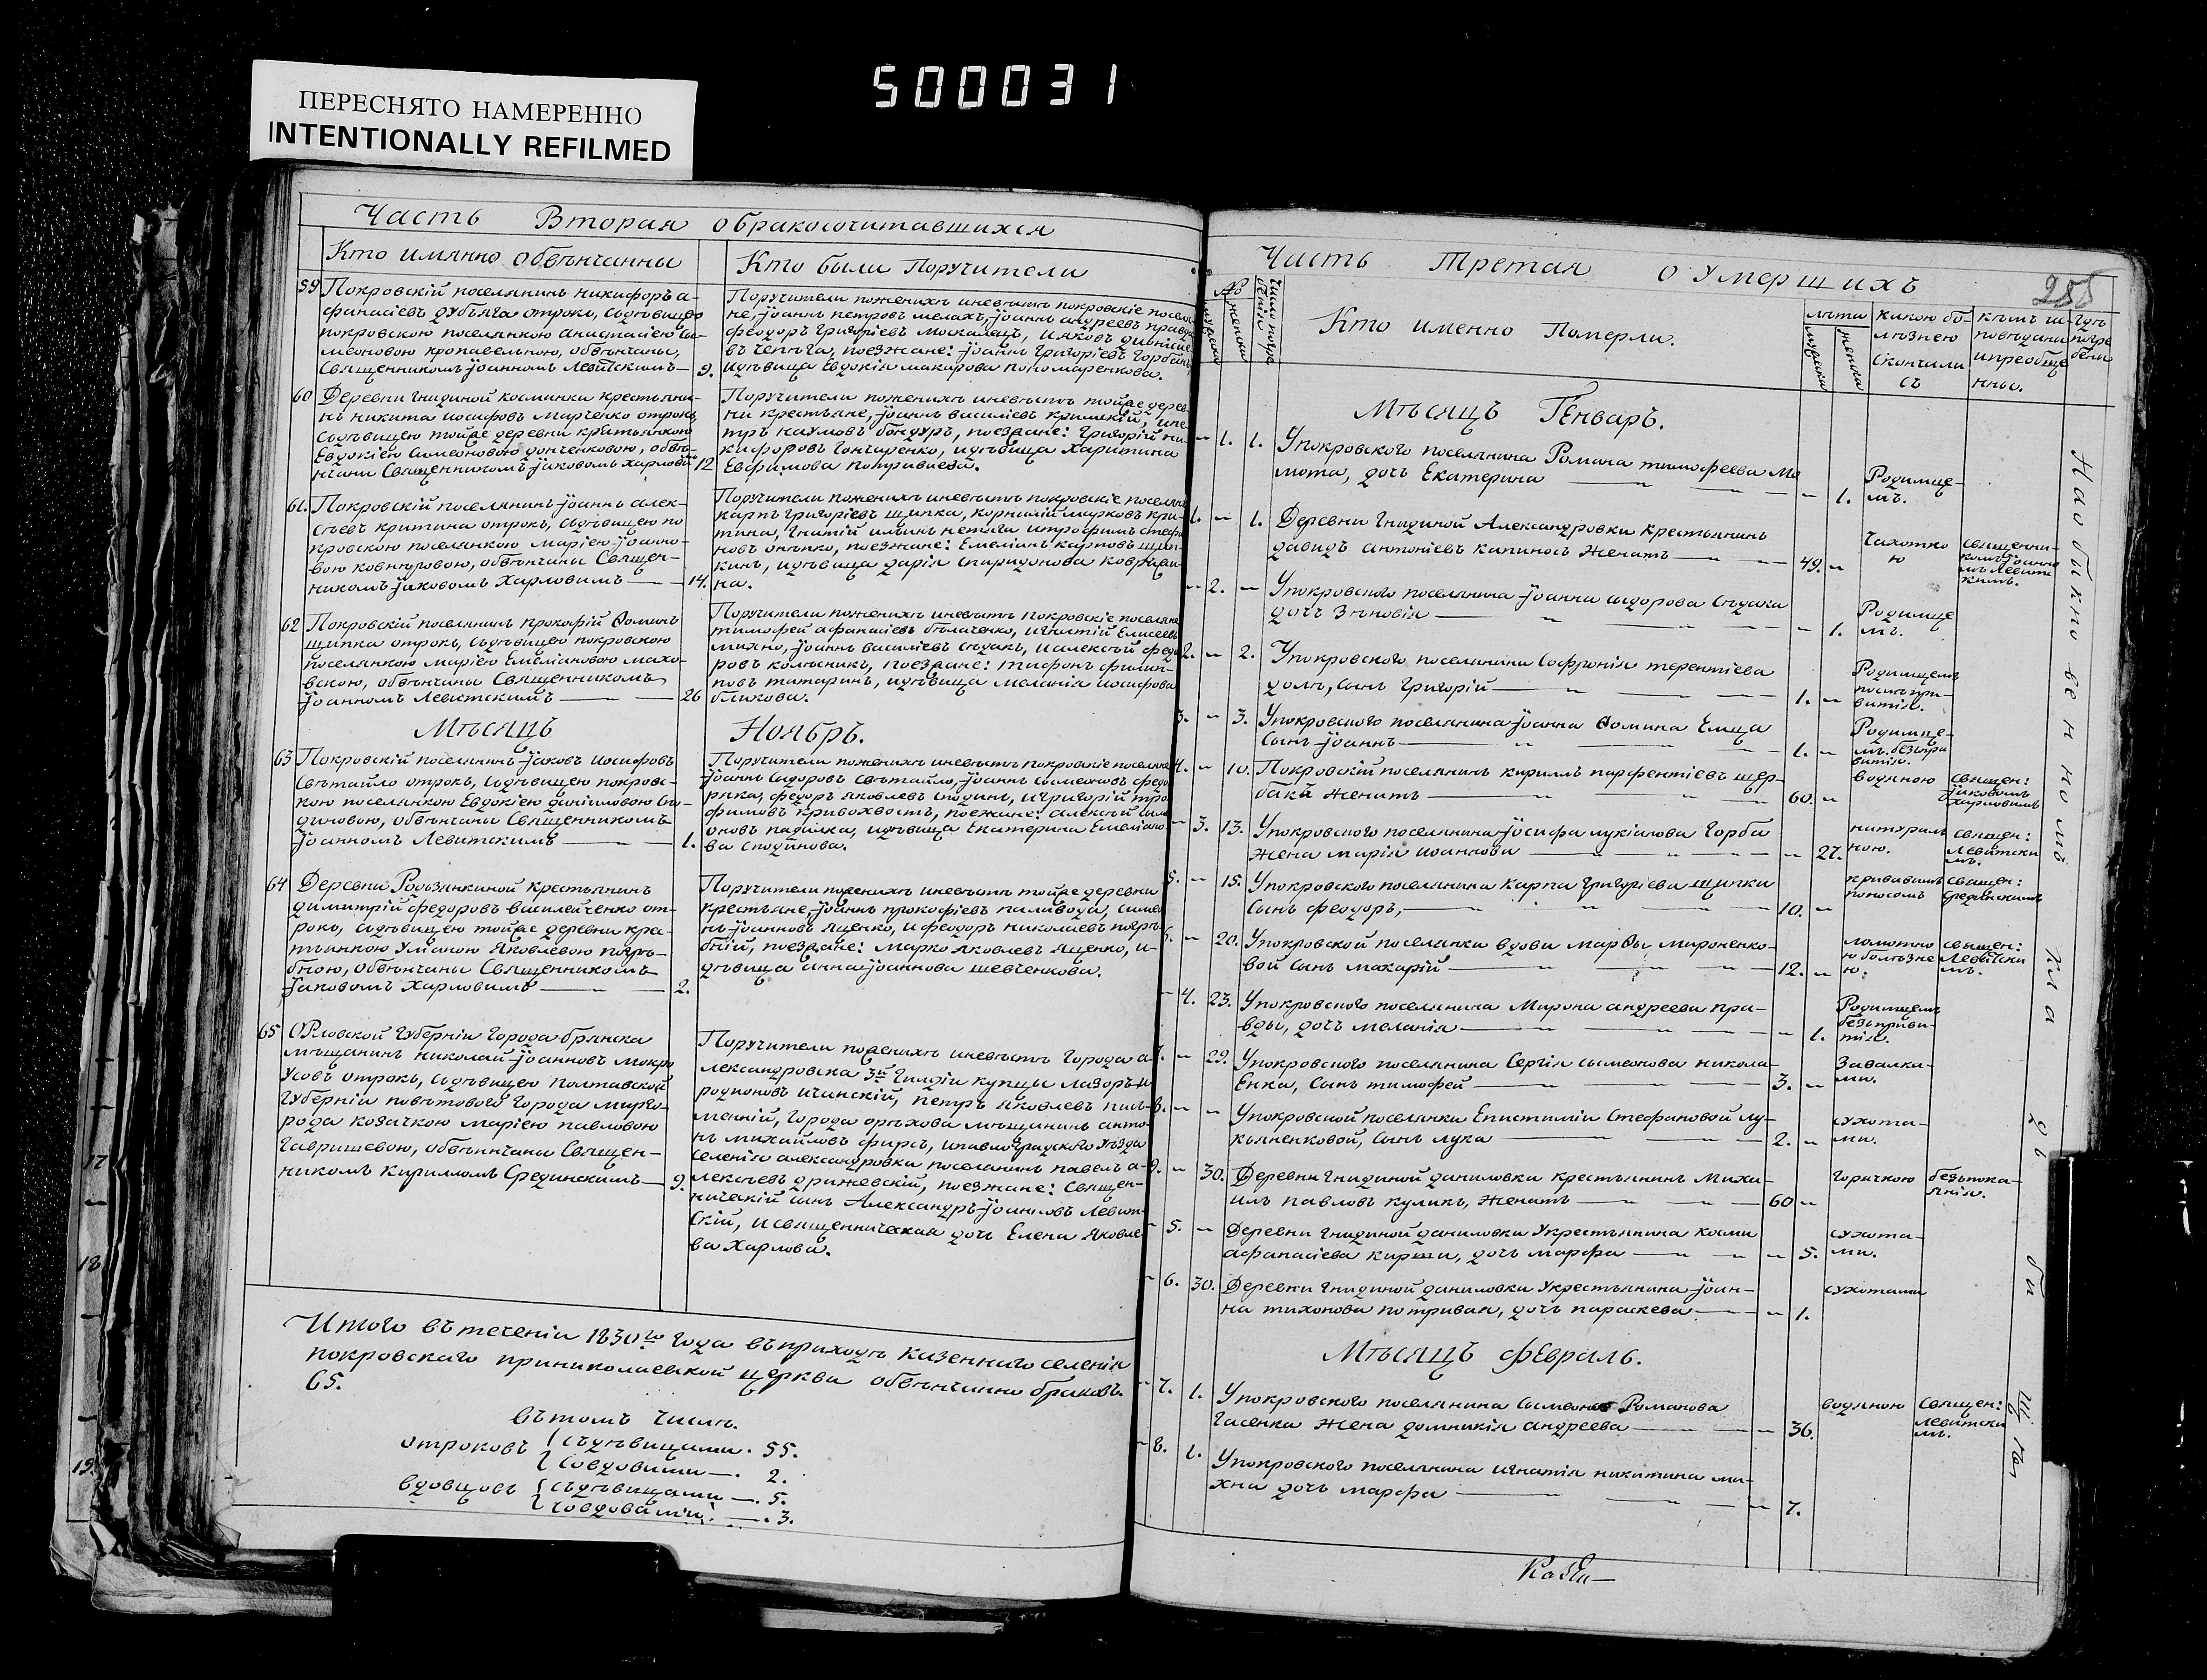 500031
ПЕРЕСНЯТО НАМЕРЕННО
INTENTIONALLY REFILMED
Часть Вторая о бракосочитавшихся
Кто имянно обвѣнчанны
Кто были Поручители
59 Покровскій поселянинъ Никифоръ а-
фанасіевъ дубъяга отрокъ, содѣвицею
покровскою поселянкою Анастасіею Си-
меоновою кропавельною, обвѣнчаны,
Священникомъ Іоанномъ Левитскимъ — 9.
Поручители поженихѣ иневѣстѣ покровскіе поселя-
не, Іоаннъ петровъ мелахъ, Іоаннъ андреевъ правда
феодоръ Григоріевъ Москалецъ, Иаковъ
въ чепига, поезжане: Іоаннъ Григоріевъ Горбань
идѣвица Евдокія макарова пономаренкова.
60 Деревни Гнидиной косминки крестьяни-
нъ никита Иосифовъ Марченко отрокъ,
содѣвицею тойже деревни крестьянкою
Евдокіею Симеоновою донченковою, обвѣ-
нчаны Священникомъ Іаковомъ Харловымъ 12
Поручители поженихѣ иневѣстѣ тойже дерев-
ни крестьяне, Іоаннъ василіевъ кримскій, ипе-
тръ наумовъ бондуръ, поезжане: Григорій ни-
кифоровъ Гончаренко, идѣвица Харитина
Евфимова потриваева.
61. Покровскій поселянинъ Іоаннъ алек-
сѣевъ критина отрокъ, содѣвицею по
кровскою поселянкою Маріею Іоанно-
вою ковжуровою, обвѣнчаны Священ-
никомъ Іаковомъ Харловимъ — 14.
Поручители поженихѣ иневѣстѣ покровскіе поселяне
карпъ Григоріевъ щипка, корнилій марковъ кри-
тина, Гнатій ильинъ нетяга итрофимъ стефа
новъ онѣпко, поезжане: Емеліанъ карповъ щип-
кинъ, идѣвица дарія спиридонова ковжури-
на.
62 Покровскій поселянинъ прокофій Ѳоминъ
щипка отрокъ, содѣвицею покровскою
поселянкою Маріею Емеліановою махо-
вскою, обвѣнчаны Священникомъ
Іоанномъ Левитскимъ — 26
Поручители поженихѣ иневѣстѣ покровскіе поселяне
тимофей афанасіевъ бѣлаченко, игнатій Елисеевъ
михно, Іоаннъ василіевъ сѣдакъ, иалексѣй федо
ровъ колѣсникъ, поезжане: тифонъ филип-
повъ татаринъ, идѣвица меланія иосифова
бликова.
Мѣсяцъ Ноябръ.
63 Покровскій поселянинъ Іаковъ Иосифовъ
Свѣтайло отрокъ, содѣвицею покровс-
кою поселянкою Евдокіею даниловою спо-
диновою, обвѣнчаны Священникомъ
Іоанномъ Левитскимъ — 1.
Поручители поженихѣ иневѣстѣ покровскіе поселяне
Іоаннъ Сидоровъ Свѣтайло, Іоаннъ симеоновъ федо
ряка, федоръ яковлевъ сподинъ, игригорій тро
фимовъ кривохвостъ, поежане: алексѣй симе
оновъ падалка, идѣвица Екатерина Емеліано-
ва сподинова.
64 Деревни Родзянкиной крестьянинъ
димитрій федоровъ василейченко от-
рокъ, содѣвицею тойже деревни кре-
стьянкою Уліаною Яковлевою погрѣ-
бною, обвѣнчаны Священникомъ
Іаковомъ Харловимъ — 2.
Поручители поженихѣ иневѣстѣ тойже деревни
крестьяне, Іоаннъ прокофіевъ паливода, симео
нъ Іоанновъ Яценко, и феодоръ николаевъ погрѣ-
бній, поездане: Марко Яковлевъ Яценко, и-
дѣвица анна Іоаннова шевченкова.
65 Орловской Губерніи Города брянска
мѣщанинъ николай Іоанновъ мокро
Усовъ отрокъ, содѣвицею Полтавской
Губерніи повѣтового города мирго-
рода козачкою маріею павловою
Гавришевою, обвѣнчаны Священ-
никомъ кирилломъ Срединскимъ — 9.
Поручители поженихѣ иневѣстѣ Города а-
лександровска 3й Гилдіи купцы лазоръ и
родионовъ ичанскій, петръ Яковлевъ пись-
менній, города орѣхова мѣщанинъ анто-
нъ михайловъ фирсъ, ипавлоградского Уѣзда
селенія александровки поселянинъ павелъ а-
лексѣевъ дрижевскій, поезжане: Священ-
ническій сынъ Александръ Іоанновъ Левит-
скій, исвященническая дочь Елена Яковле
ва Харлова.
Итого въ теченіи 1830го года въприходѣ казенного селенія
покровскаго приниколаевской церкви обвѣнчанно браковъ
65.
въ томъ числѣ.
отроковъ съдѣвицами. 55.
совдовами —. 2.
вдовцовъ съдѣвицами —. 5.
совдовами —. 3.
Часть Третая о Умершихъ
255
№
мужеска
женска
число погребенія
Кто именно Померли.
лѣта
мужеска
женска
какою бо-
лѣзнею
скончали
съ
кѣмъ ис-
повѣданы
ипреобще
нны.
гдѣ
погре
бены
Мѣсяцъ Генваръ.
— 1. 1. Упокровского поселянина Романа тимофеева Мо
мота, дочь Екатерина — 1. Родимце-
мъ.
1. — 1. Деревни Гнидиной Александровки крестьянинъ
давидъ антоніевъ капиносъ женатъ — 49. — Чахотко
ю
священни-
комъ Іоанно
мъ Левитс
кимъ.
— 2. — Упокровского поселянина Іоанна сидорова Сѣдака
дочь Зѣновія — 1. Родимце
мъ.
2. — 2. Упокровского поселянина Софронія терентіева
долъ, сынъ григорій — 1. — Родимцемъ
послѣ при-
витія.
3. — 3. Упокровского поселянина Іоанна Ѳомина Емца
сынъ Іоаннъ — 1. — Родимце-
мъ безъпри
витія.
4. — 10. Покровскій поселянинъ кириллъ парфентіевъ щер-
бакъ женатъ — 60. — водяною
священ:
Іаковомъ
Харловимъ
— 3. 13. Упокровского поселянина Іосифа лукіанова Горба
жена марія иоаннова — 27. натураль
ною.
священ:
Левитски
мъ.
5. — 15. Упокровского поселянина карпа Григоріева щипки
сынъ феодоръ, — 10. — кривавимъ
поносомъ
священ:
Срединскимъ
6. — 20. Упокровской поселянки вдови марѲы мироненко-
вой сынъ макарій — 12. — ломотно
ю болѣзне
ю.
священ:
Левитски
мъ.
— 4. 23. Упокровского поселянина Мирона андреева пра-
вды, дочь меланія — 1. Родимцемъ
безъприви-
тія.
7. — 29. Упокровского поселянина Сергія сымеонова никола-
Енка, сынъ тимофей — 3. — Завалка-
ми.
8. — — Упокровской поселянки Епистиміи Стефановой лу-
кьяненковой, сынъ лука — 2. — сухота-
ми.
9. — 30. Деревни Гнидиной даниловки крестьянинъ Миха-
илъ павловъ куликъ, женатъ — 60 — Горячкою
безъпока-
янія.
— 5. — Деревни Гнидиной даниловки Укрестьянина космы
афанасіева кирши, дочь марфа — 5. сухота-
ми.
— 6. 30. Деревни Гнидиной даниловки Укрестьянина Іоан-
на тихонова потривая, дочь параскева — 1. сухотами
Мѣсяцъ февраль.
— 7. 1. Упокровского поселянина Сымеона Романова
Гасенка жена домникія андреева — 36. водяною
священ:
левитски
мъ.
— 8. 1. Упокровского поселянина игнатія никитина ми-
хна дочь марфа — 7.
На обыкновенномъ кладбищѣ